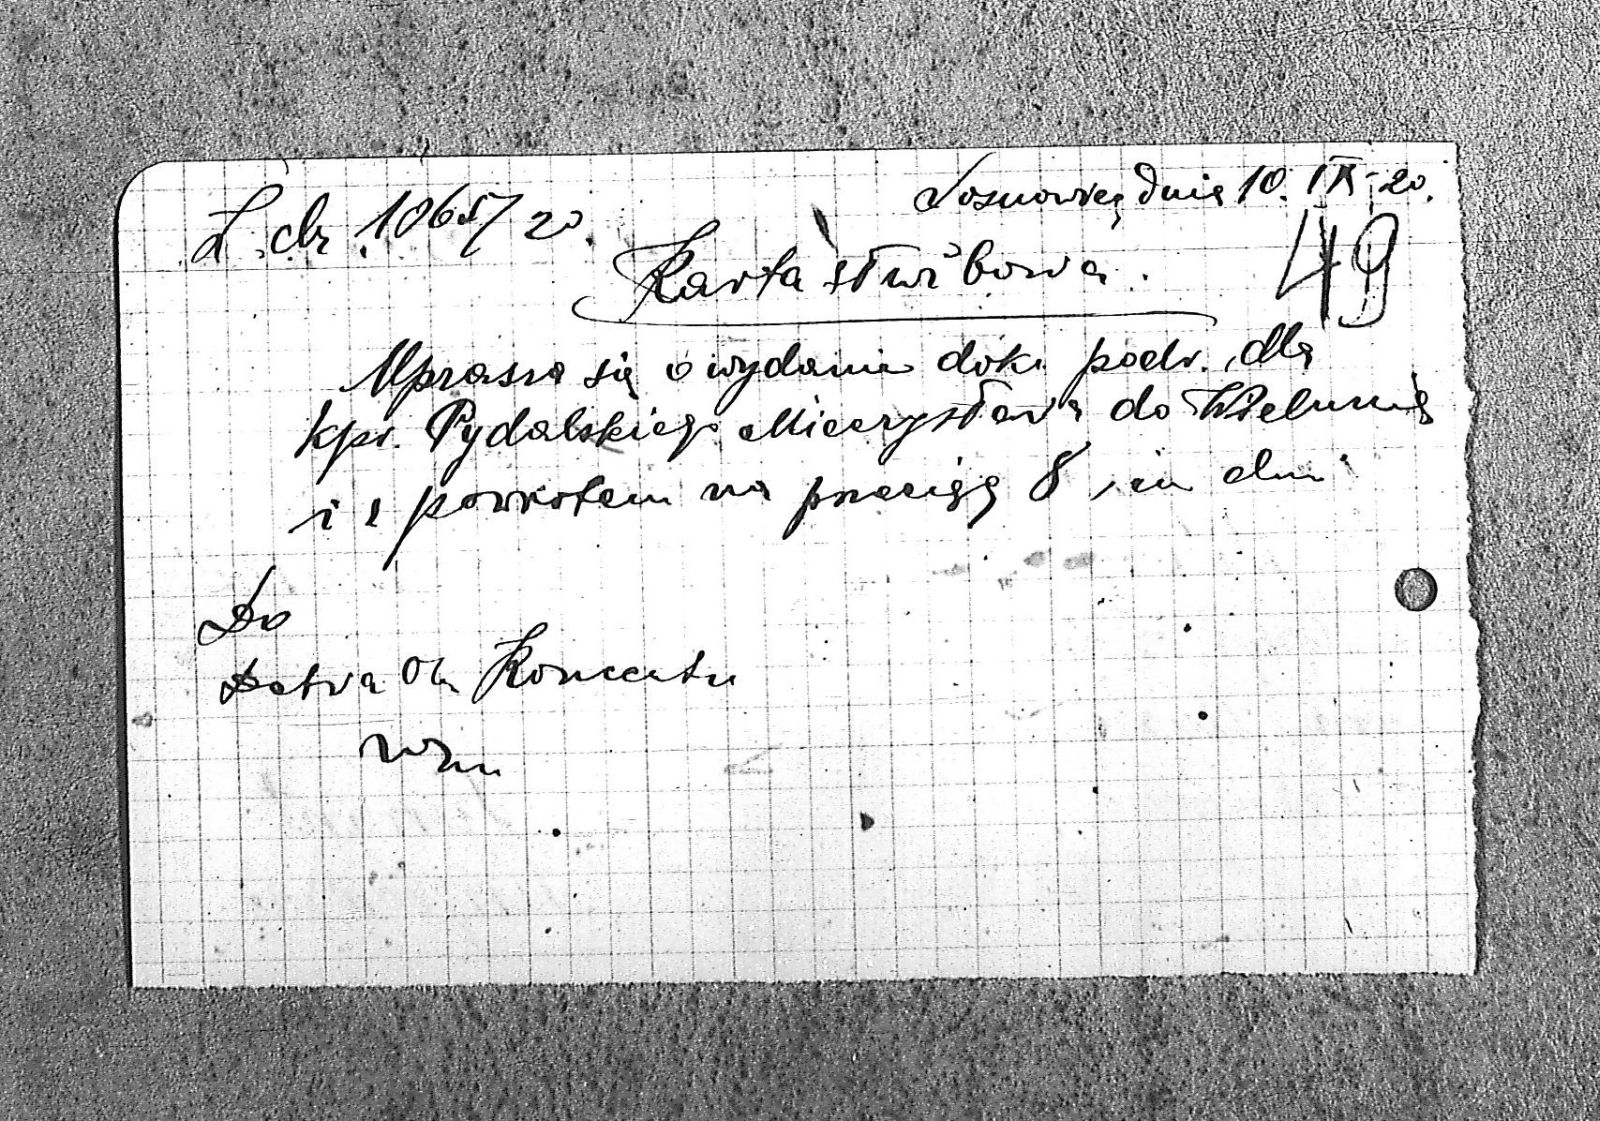 L. dz. 1065/20.
Sosnowiec, dnia 10. IX. 20.
49
Karta służbowa.
Uprasza się o wydanie dok. podr. dla
kpr. Pydalskiego Mieczysława do Wielunia
i z powrotem na przeciąg 8, iu dni
Do
Dctwa Ob. Koncentr.